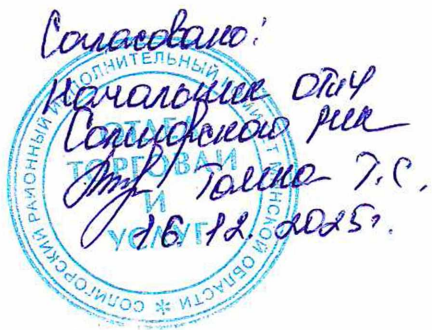 Согласовано:
Начальник ОТиУ
Солигорского рик
Томко Т.С.
16.12.2025г.
СОЛИГОРСКИЙ РАЙОННЫЙ ИСПОЛНИТЕЛЬНЫЙ КОМИТЕТ МИНСКОЙ ОБЛАСТИ
ОТДЕЛ
ТОРГОВЛИ
И
УСЛУГ